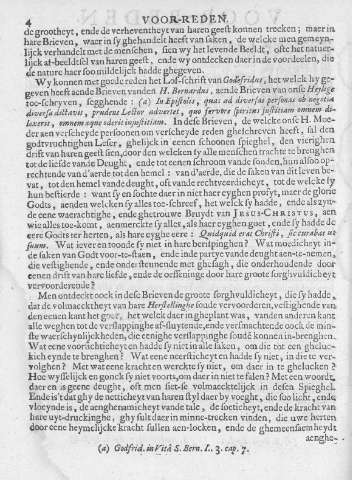 4 VOOR-REDEN.
de grootheyt, ende de verheventheyt van haren geest konnen trecken; maer in
hare Brieven, waer in sy ghehandelt heeft van saken, de welcke men gemeyn-
lijck verhandelt met de menschen, sien wy het levende Beeldt, ofte het natuer-
lijck af-beeldtsel van haren geest, ende wy ontdecken daer in de voordeelen, die
de nature haer soo mildelijck hadde ghegeven.
Wy konnen met goede reden het Lof-schrift van Godefridus, het welck hy ge-
geven heeft aende Brieven vanden H. Bernardus, aende Brieven van onse Heylige
toe-schryven, segghende: (a) In Epistolis, quas ad diversas personas ob negotia
diversa dictavit, prudens Lector advertet, quo fervore spiritus justitiam omnem di-
lexerit, omnem æquè oderit injustitiam. In dese Brieven, de welcke onse H. Moe-
der aen verscheyde persoonen om verscheyde reden gheschreven heeft, sal den
godtvruchtighen Leser, ghelijck in eenen schoonen spieghel, den vierighen
drift van haren geest sien, door den welcken sy alle menschen trachte te brenghen
tot de liefde van de Deught, ende tot eenen schroom van de sonden, hun alsoo op-
rechtende van d'aerde tot den hemel: van d'aerde, die de saken van dit leven be-
vat, tot den hemel van de deught, oft vande rechtveerdicheyt, tot de welcke sy
hun bestierde: want sy en sochte daer in niet haer eyghen profyt, maer de glorie
Godts, aenden welcken sy alles toe-schreef, het welck sy hadde, ende als syn-
de eene waerachtighe, ende ghetrouwe Bruydt van JESUS-CHRISTUS, aen
wie alles toe-komt, aenmerckte sy alles, als haer eyghen goet, ende sy hadde de
eere Godts ter herten, als haer eyghen eere: Quidquid erat Christi, sic curabat ut
suum. Wat iever en toonde sy niet in hare berispinghen? Wat moedicheyt in-
de saken van Godt voor-te-staen, ende inde partye van de deught aen-te-nemen,
die vestighende, ende ondersteunende met ghesagh, die onderhoudende door
eenen drift van hare liefde, ende de oeffeninge door hare groote sorghvuldicheyt
vervoorderende?
Men ontdeckt oock in dese Brieven de groote sorghvuldicheyt, die sy hadde,
dat de volmaecktheyt van hare Herstellinghe soude vervoorderen, vestighende van
den eenen kant het goet, het welck daer in gheplant was, van den anderen kant
alle weghen tot de verslappinghe af-sluytende, ende versmachtende oock de min-
ste waerschynlijckheden, die eenighe verslappinghe soude konnen in-brenghen.
Wat eene voorsichticheyt en hadde sy niet in alle saken, om die tot een geluc-
kich eynde te brenghen? Wat eene neersticheyt en hadde sy niet, in die te ver-
volghen? Met wat eene krachten werckte sy niet, om daer in te ghelucken?
Hoe wysselijck en gonck sy niet voorts, om daer in niet te falen? Met een woordt,
daer en is geene deught, oft men siet-se volmaecktelijck in desen Spieghel.
Ende is't dat ghy de netticheyt van haren styl daer by voeght, die soo licht, ende
vloeynde is, de aenghenamicheyt vande tale, de soeticheyt, ende de kracht van
hare uyt-druckinghe, ghy sult daer in minne-trecken vinden, die uwe herten
door eene heymelijcke kracht sullen aen-locken, ende de ghemeensaemheydt
aenghe-
(a) Godfrid. in Vitâ S. Bern. L. 3. cap. 7.